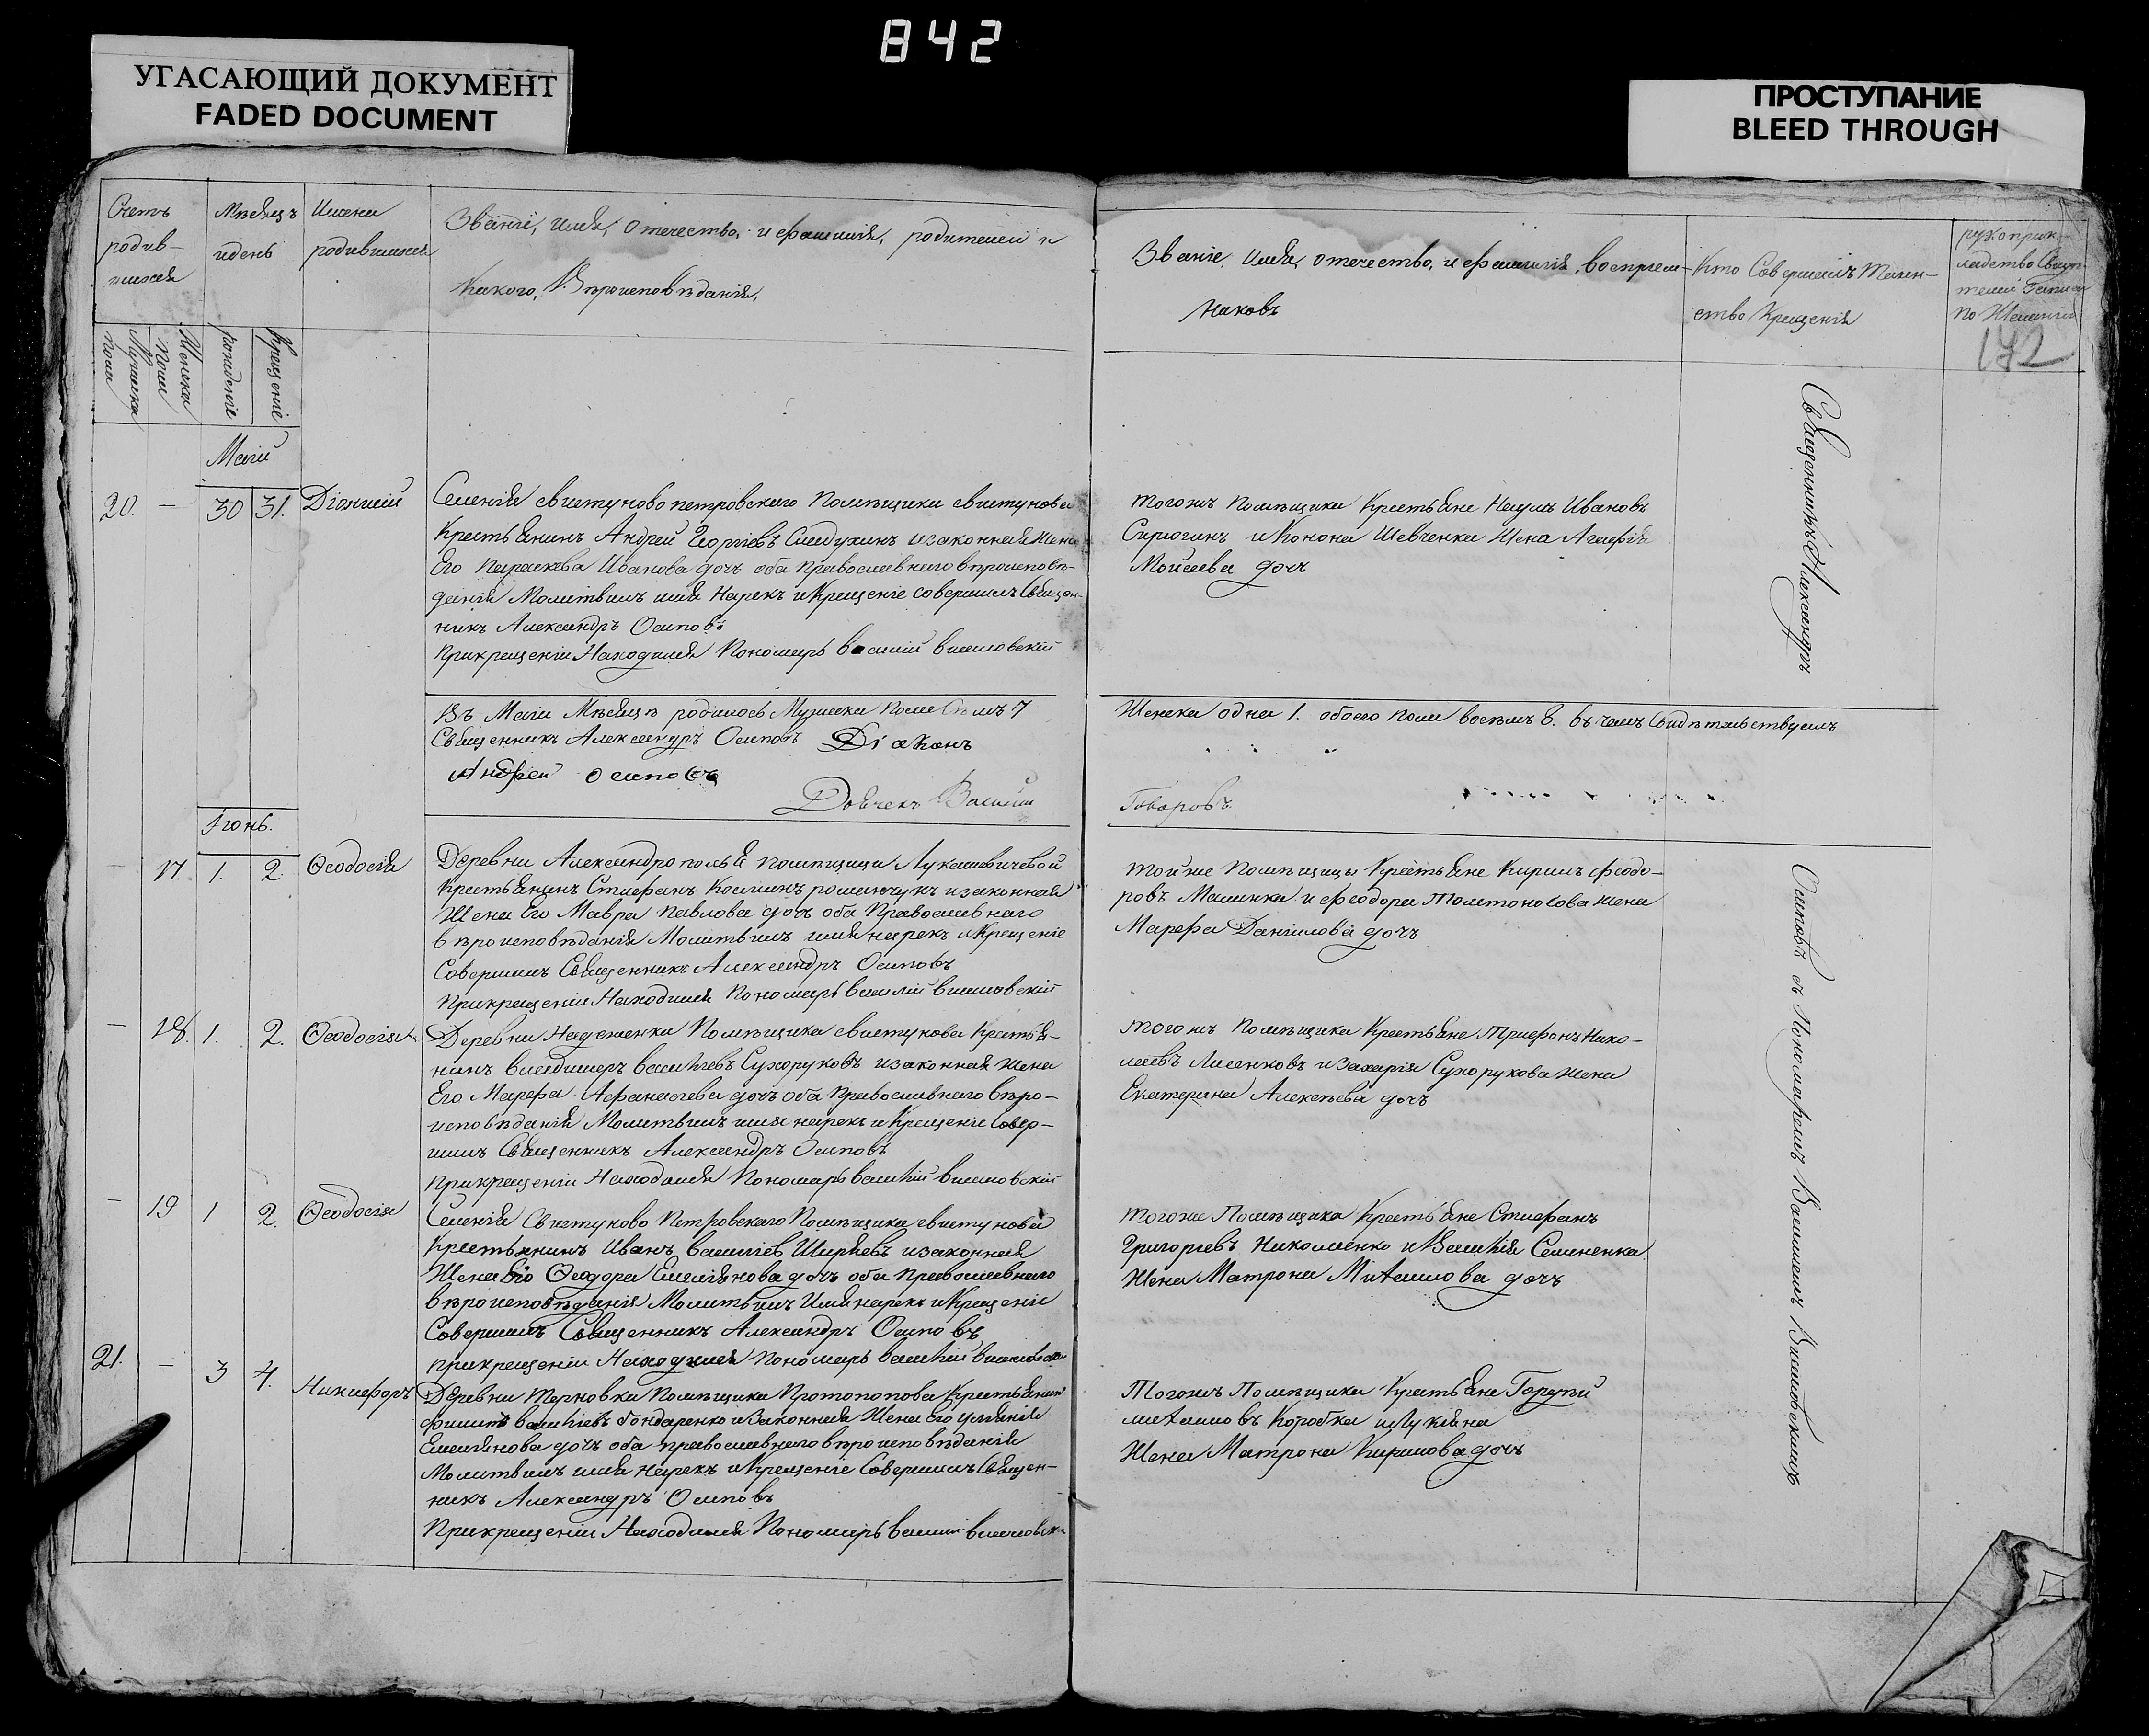 842
УГАСАЮЩИЙ ДОКУМЕНТ
FADED DOCUMENT
ПРОСТУПАНИЕ
BLEED THROUGH
Счетъ
родив-
шихся
Мѣсяцъ
и день
Имена
родившихся
Званіе, имя, отечество, и фамилія, родителей и
Какого, Вѣроисповѣданія,
Мужеска
пола
Женска
пола
рожденіе
Крещеніе
Званіе, имя, отечество, и фамилія, воспріем-
никовъ
Кто Совершалъ Таин-
ство Крещенія
рукоприк-
ладство Свидѣ-
телей Записи
по Желанію
172
Маій
20. — 30 31. Діонисій
Селенія свистуново петровского Помѣщика свистунова
Крестьянинъ Андрей Георгіевъ изаконная Жена
Его Параскева Иванова дочь оба Православнаго вѣроисповѣ-
данія Молитвилъ имя Нарекъ и Крещеніе совершилъ Священ-
никъ Александръ Осиповъ
Прикрещеніи Находился Пономарь василій висиловскій
тогожъ Помѣщика Крестьяне Наумъ Ивановъ
и Конона Шевченка Жена Агафія
Моисеева дочь
Въ Маіи Мѣсяцѣ родилось Мужеска Пола Семь 7
Женска одна 1. обоего пола восемь 8. въ чемъ Свидѣтельствуемъ
Священникъ Александръ Осиповъ Діаконъ
Андрей осиповъ
Василій
Говоровъ
Іюнь.
— 17. 1. 2. Ѳеодосія
Деревни Александрополья помѣщицы Лукашевичевой
Крестьянинъ Стефанъ изаконная
Жена Его Мавра Павлова дочь оба Православнаго
вѣроисповѣданія Молитвилъ имя нарекъ и Крещеніе
Совершилъ Священникъ Александръ Осиповъ
Прикрещеніи Находился Пономарь василій висиловскій
Тойже Помѣщицы Крестьяне Кирилъ Феодо-
ровъ Машинка и Феодора жена
Марфа Даніилова дочь
— 18. 1. 2. Ѳеодосія
Деревни Надеженки Помѣщика свистунова Крестья-
нинъ владимеръ васильевъ Сухоруковъ изаконная жена
Его Марфа Афанасіева дочь оба Православнаго вѣро-
исповѣданія Молитвилъ имя нарекъ и Крещеніе Совер-
шилъ Священникъ Александръ Осиповъ
Прикрещеніи Находился Пономарь василій висиловскій
тогожъ Помѣщика Крестьяне Трифонъ Нико-
лаевъ Лисенковъ и Захарія Сухорукова жена
Екатерина Алексѣева дочь
— 19 1 2. Ѳеодосія
Селенія Свистуново Петровскаго Помѣщика свистунова
Крестьянинъ Иванъ васильевъ Ширяевъ изаконная
Жена Его Ѳеодора Емеліянова дочь оба Православнаго
вѣроисповѣданія Молитвилъ Имя нарекъ и Крещеніе
Совершилъ Священникъ Александръ Осиповъ
прикрещеніи Находился Пономарь василій
тогоже Помѣщика Крестьяне Стефанъ
Григорьевъ Николаенко и Василія Семененка
Жена Матрона Михаилова дочь
21. — 3 4. Никифоръ
Деревни Терновки Помѣщика Протопопова Крестьянинъ
Филипъ васильевъ бондаренко и Законная Жена Его уліянія
Емеліянова дочь оба православнаго вѣроисповѣданія
Молитвилъ имя нарекъ и Крещеніе Совершилъ Священ-
никъ Александръ Осиповъ
Прикрещеніи Находился Пономарь василій
Тогожъ Помѣщика Крестьяне Гордѣй
михаиловъ Коробка и Лукіяна
Жена Матрона Кирилова дочь
Священникъ Александръ
Осиповъ съ Пономаремъ Василіемъ Висиловскимъ